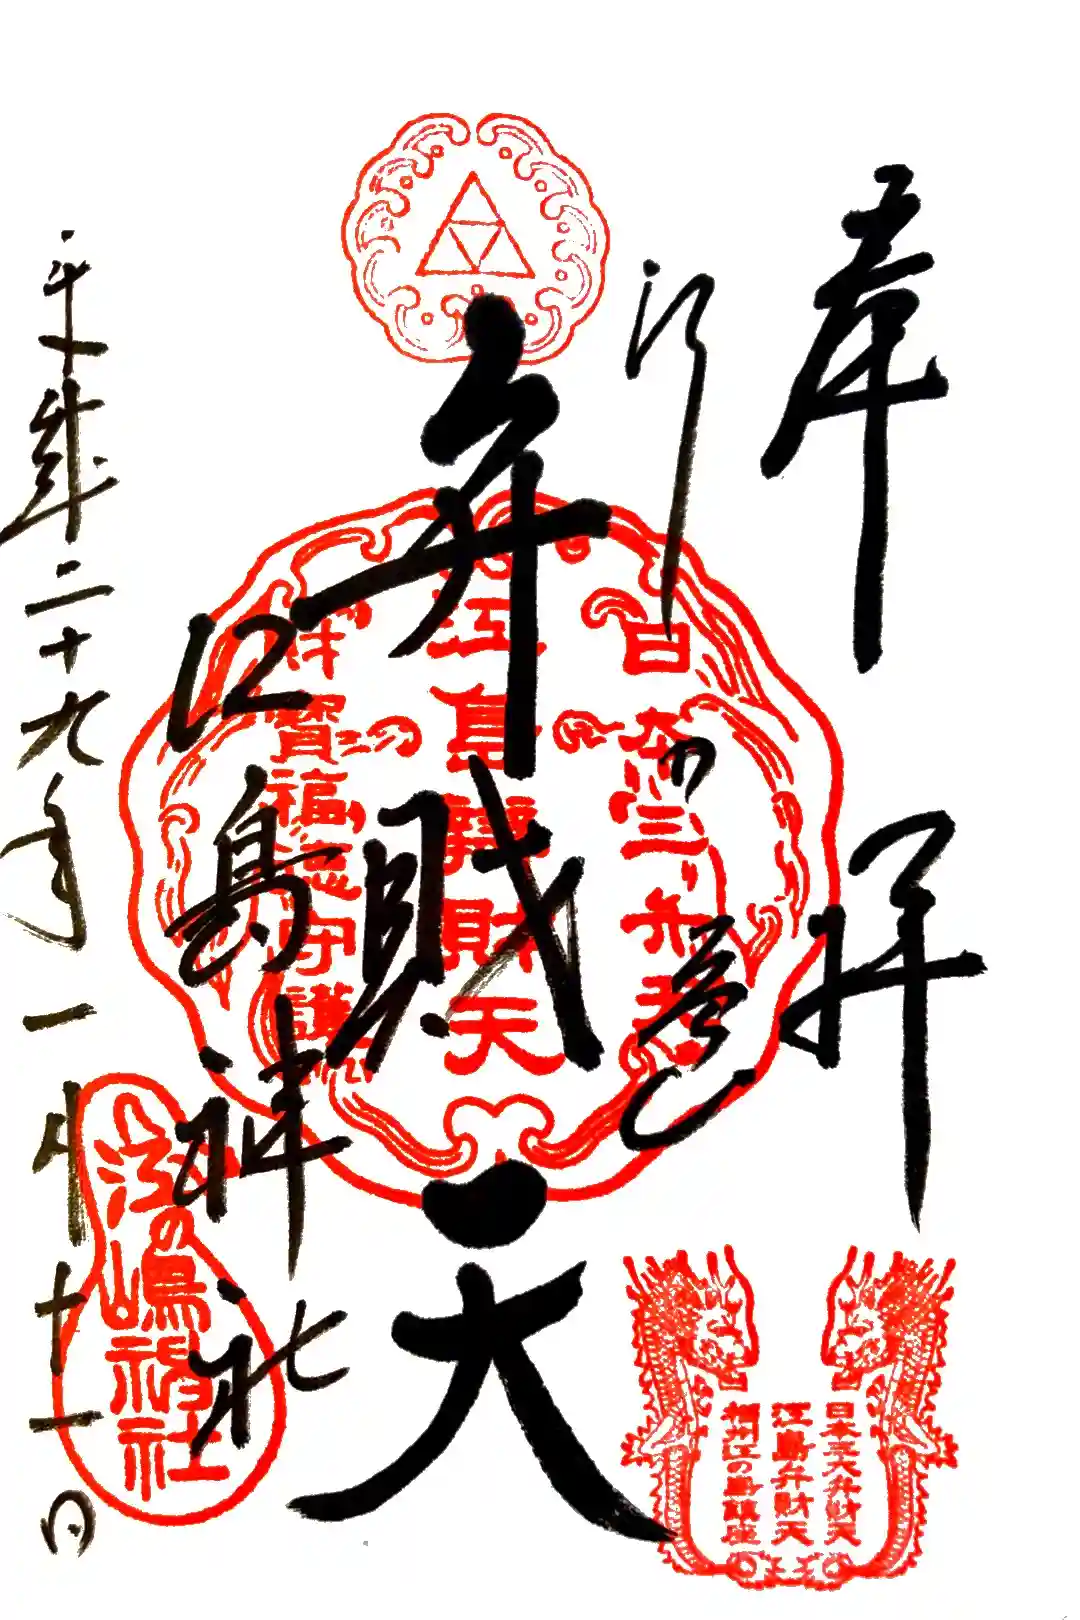 奉拝
江の島
弁財天
江島神社
平成二十九年一月十一日
日本三弁天
江島辨財天
財寶福徳守護
江の嶋神社
日本三大弁財天
江島弁財天
相州江の島鎮座